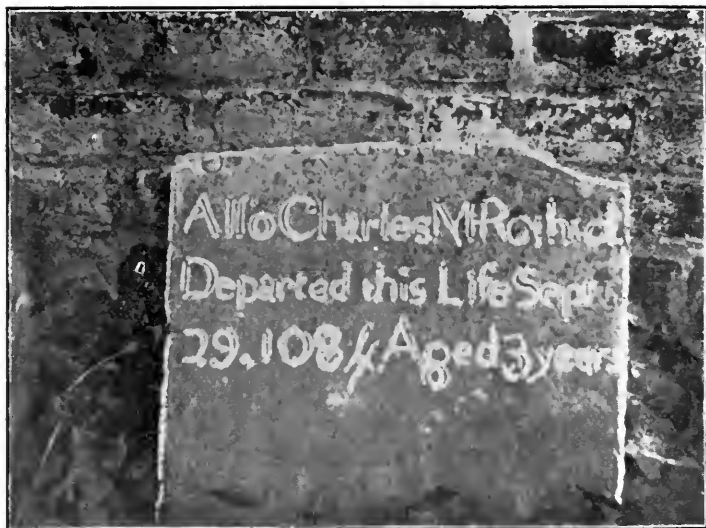 Allso Charles M Rothid
Departed this Life Sept
29, 1084 Aged 3 years